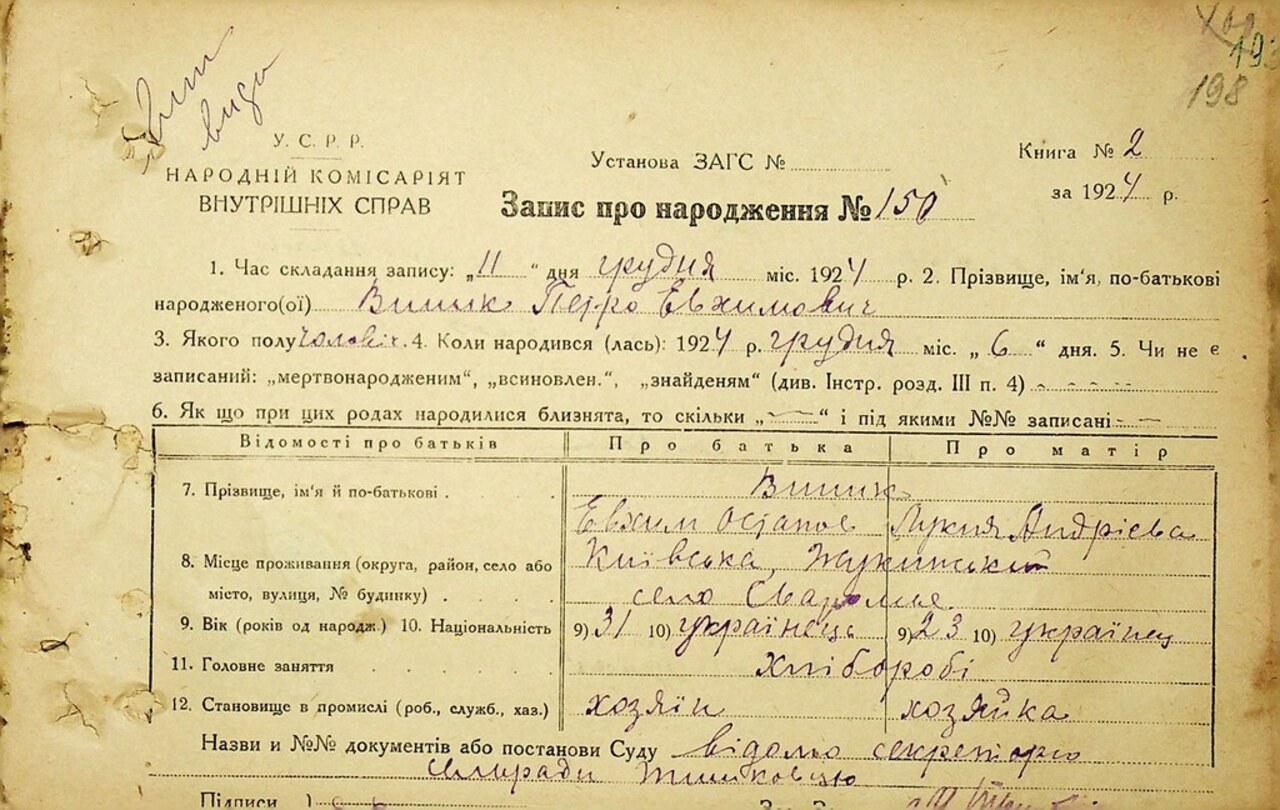 вида
198
У. С. Р. Р.
НАРОДНІЙ КОМІСАРІЯТ
ВНУТРІШНІХ СПРАВ
Установа ЗАГС №
Книга № 2
за 1924 р.
Запис про народження № 150
1. Час складання запису: „11“ дня грудня міс. 1924 р. 2. Прізвище, ім'я, по-батькові
народженого(ої) Петро Евхимович
3. Якого полу чоловіч. 4. Коли народився (лась): 1924 р. грудня міс. „6“ дня. 5. Чи не є
записаний: „мертвонародженим“, „всиновлен.“, „знайденям“ (див. Інстр. розд. III п. 4)
6. Як що при цих родах народилися близнята, то скільки „—“ і під якими №№ записані —
Відомості про батьків Про батька Про матір
7. Прізвище, ім'я й по-батькові
Евхим Остапов Лукия Андріева
8. Місце проживання (округа, район, село або Київська, Жукинський
місто, вулиця, № будинку) село Сваромье
9. Вік (років од народж.) 10. Національність 9) 31 10) українець 9) 23 10) українец
11. Головне заняття Хліборобі
12. Становище в промислі (роб., служб., хаз.) хозяїн хозяйка
Назви и №№ документів або постанови Суду відомо секретарю
сільради
Підписи